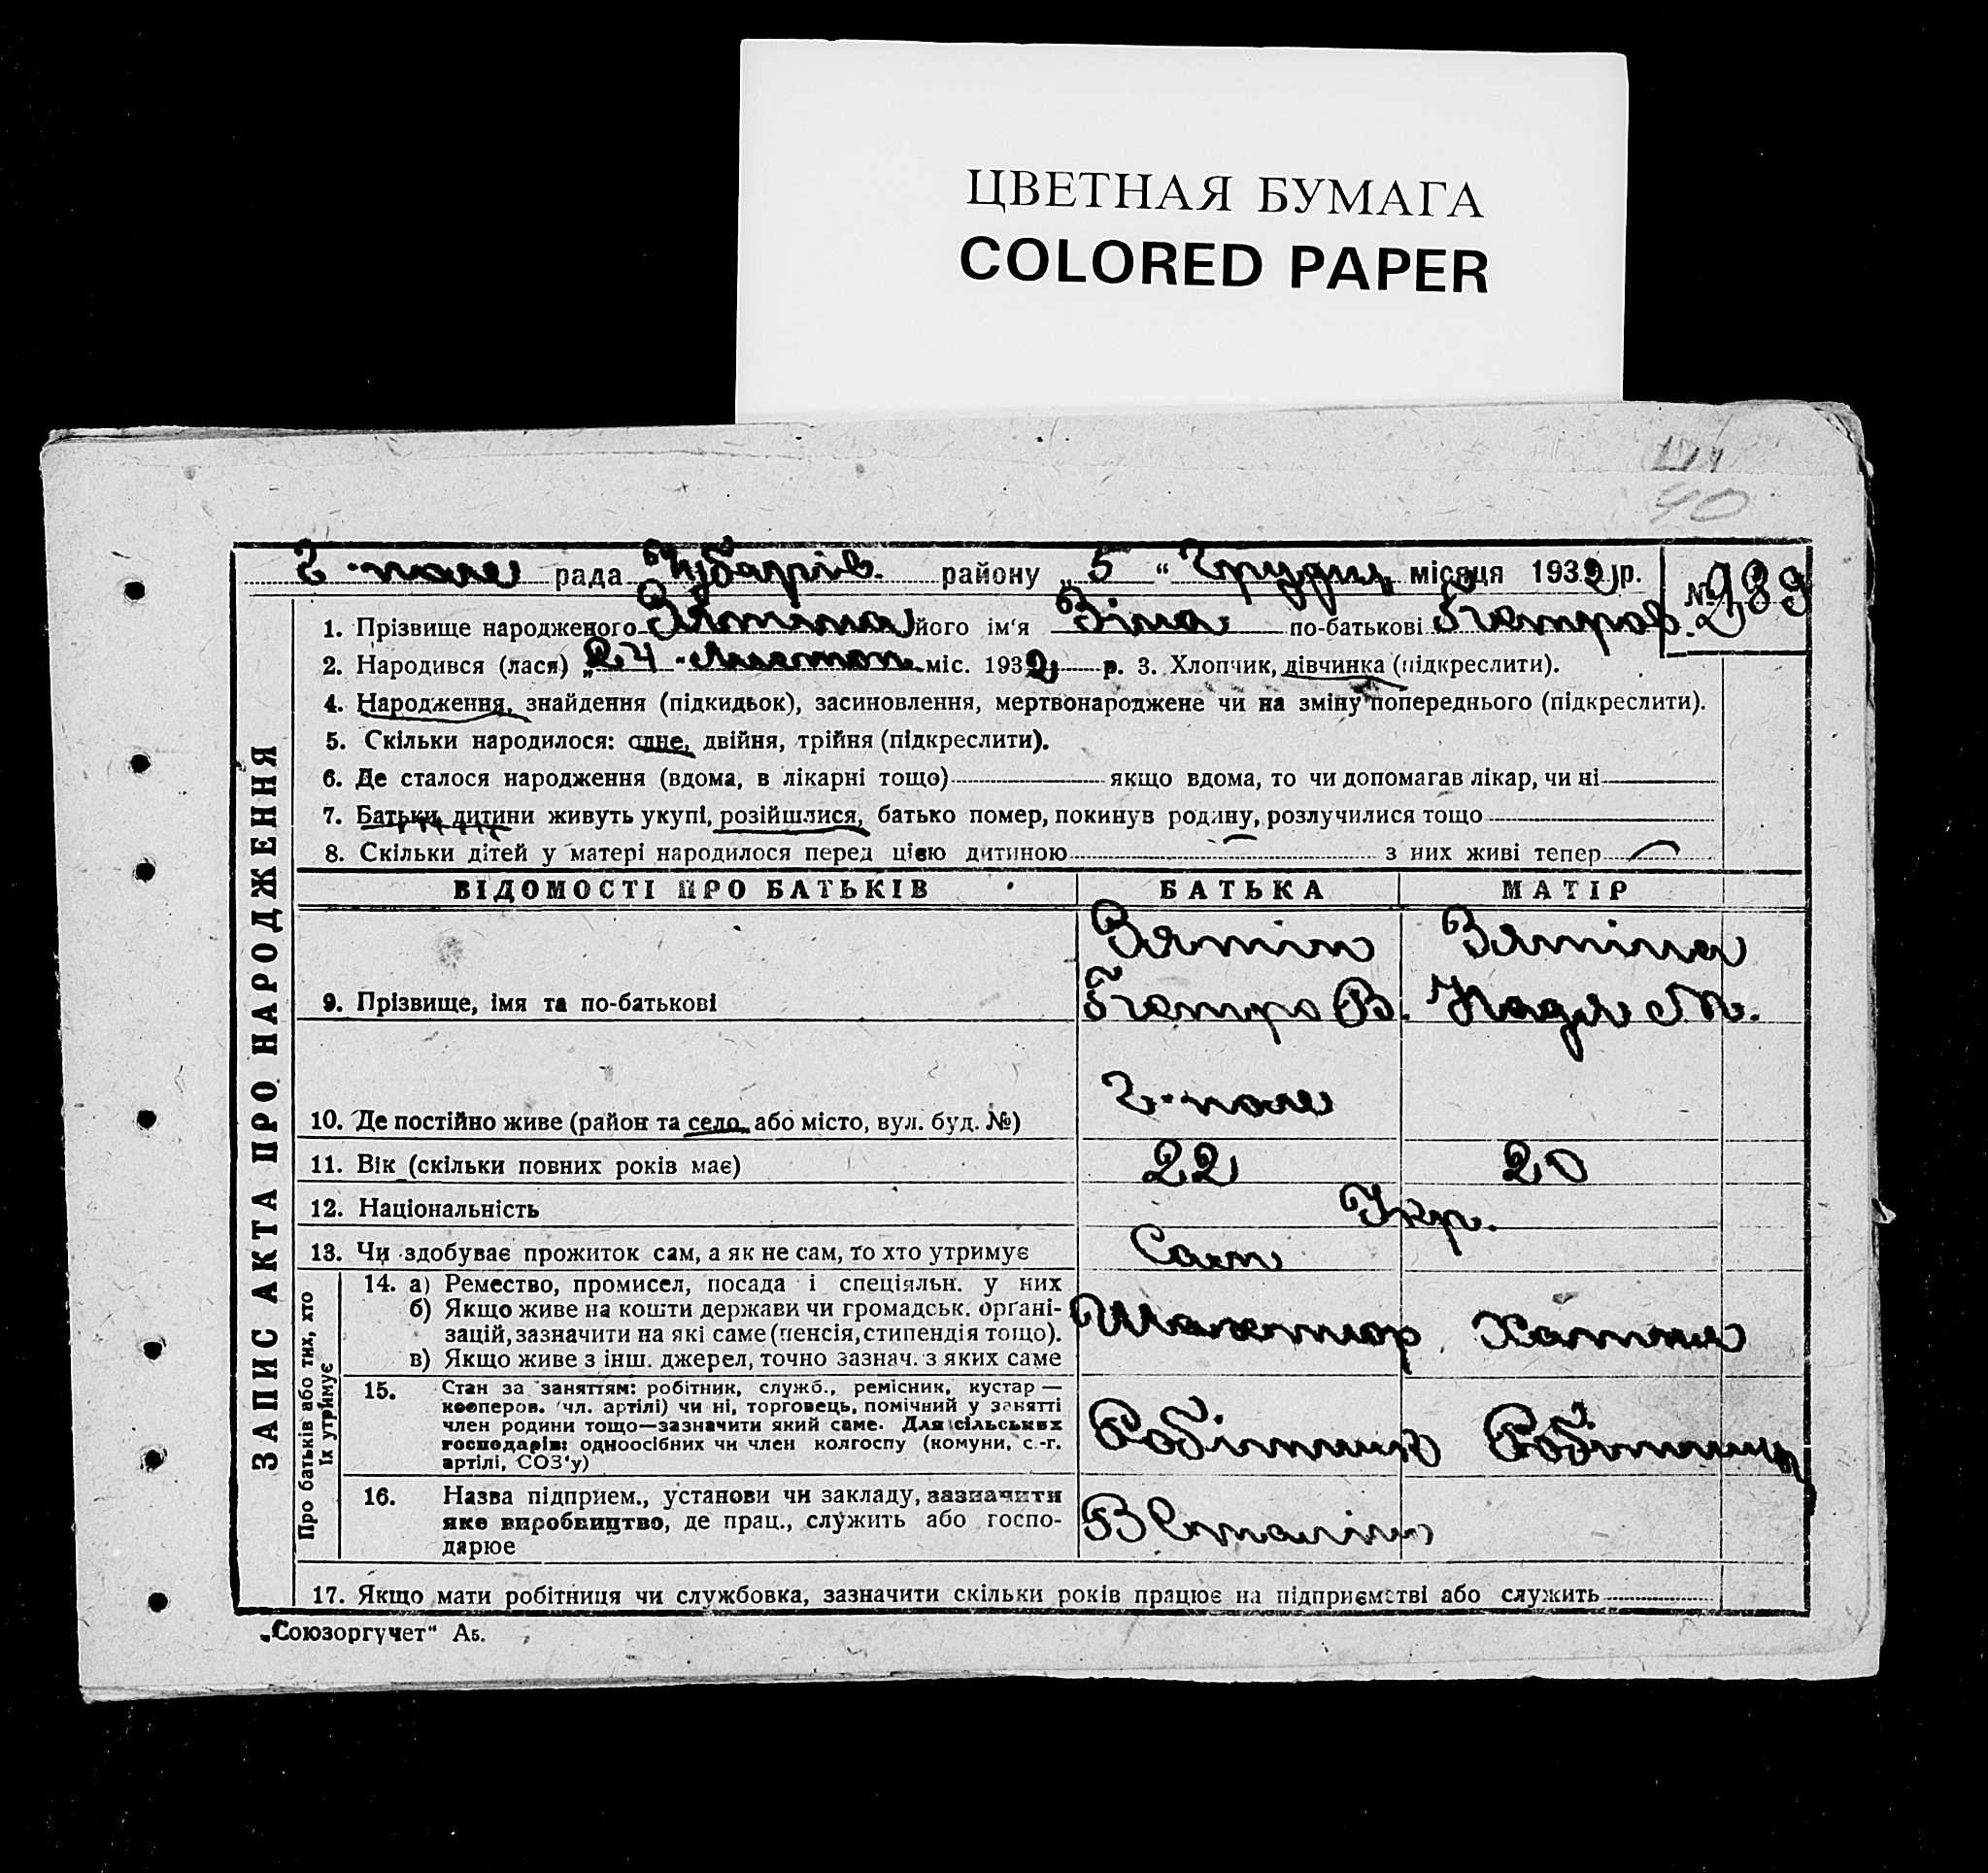 ЦВЕТНАЯ БУМАГА
COLORED PAPER
90
Г-поле рада Чубарів. району „5“ Грудня місяця 1932 р. № 989
1. Прізвище народженого Зятіна його ім'я Зіна по-батькові Петров.
2. Народився (лася) „24 „ Листоп. міс. 1932 р. 3. Хлопчик, дівчинка (підкреслити).
4. Народження, знайдення (підкидьок), засиновлення, мертвонароджене чи на зміну попереднього (підкреслити).
5. Скільки народилося: одне, двійня, трійня (підкреслити).
6. Де сталося народження (вдома, в лікарні тощо) якщо вдома, то чи допомагав лікар, чи ні
7. Батьки дитини живуть укупі, розійшлися, батько помер, покинув родину, розлучилися тощо
8. Скільки дітей у матері народилося перед цією дитиною з них живі тепер
ВІДОМОСТІ ПРО БАТЬКІВ БАТЬКА МАТІР
Зятін Зятіна
9. Прізвище, імя та по-батькові Петро В. Надя М.
Г-поле
10. Де постійно живе (район та село або місто, вул. буд. №)
11. Вік (скільки повних років має) 22 20
12. Національність Укр.
13. Чи здобуває прожиток сам, а як не сам, то хто утримує Сам
14. а) Ремество, промисел, посада і спеціяльн. у них
б) Якщо живе на кошти держави чи громадськ. орґані-
зацій, зазначити на які саме (пенсія, стипендія тощо).
в) Якщо живе з інш. джерел, точно зазнач. з яких саме
Хатня
15. Стан за заняттям: робітник, служб., ремісник, кустар —
кооперов. (чл. артілі) чи ні, торговець, помічний у занятті
член родини тощо—зазначити який саме. Для сільських
господарів: одноосібних чи член колгоспу (комуни, с.-г.
артілі, СОЗ'у)
Робітник Робітниця
16. Назва підприєм., установи чи закладу, зазначити
яке виробництво, де прац., служить або госпо-
дарює
В Сталіно
17. Якщо мати робітниця чи службовка, зазначити скільки років працює на підприємстві або служить
ЗАПИС АКТА ПРО НАРОДЖЕННЯ
Про батьків або тих, хто
їх утримує
„Союзоргучет" А5.